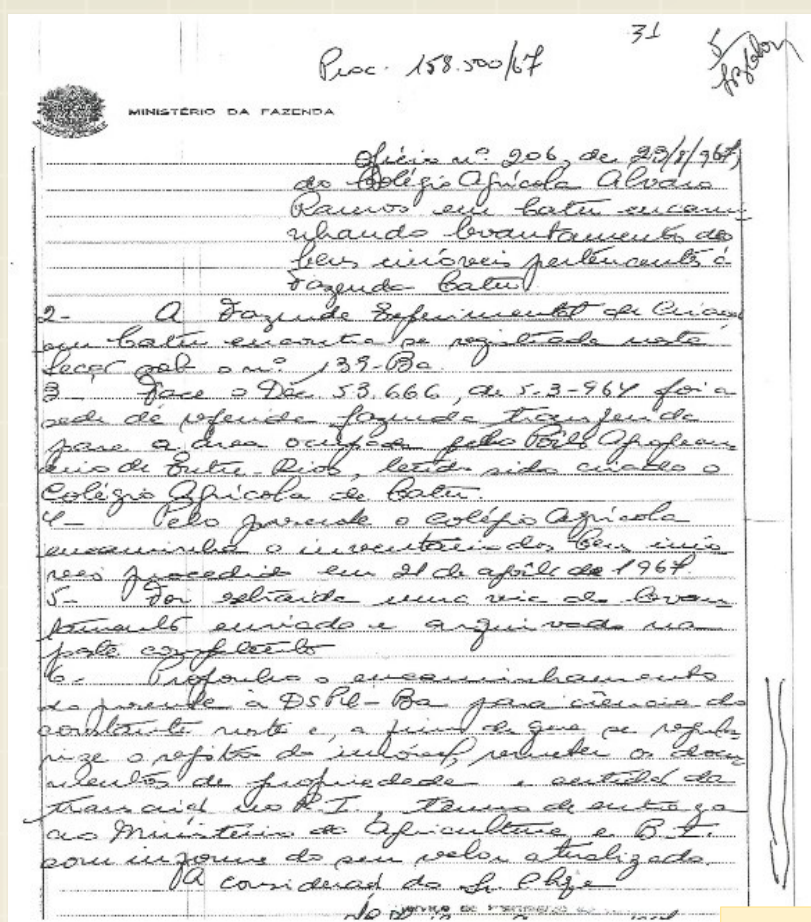 31
5
Proc. 158.500/67
MINISTÉRIO DA FAZENDA
Ofício nº 206, de 23/8/967,
do Colégio Agrícola Alvaro
Ramos em Catu encami
nhando levantamento dos
bens imóveis pertencente à
Fazenda Catu.
2- A Fazenda Experimental de Criação
em Catu encontra se registrada nesta
Seção sob o nº 139-Ba.
3- Face o Dec. 53.666, de 5-3-964 foi a
sede da referida fazenda transferida
para a área ocupada pelo Pôsto Agropecuá
rio de Entre-Rios, tendo sido criado o
Colégio Agrícola de Catu.
4- Pelo presente o Colégio Agrícola
encaminha o inventário dos bens imó
veis procedido em 21 de agôsto de 1967.
5- Foi extraída uma via do levan
tamento enviado e arquivada na
pasta competente
6- Proponho o encaminhamento
do presente à DSPU-Ba para ciência do
constante neste e, a fim de que se regula
rize o registro do imóvel, remeter os docu
mentos de propriedade e certidão da
transcrição no R.I., têrmo de entrega
ao Ministério da Agricultura e B.I.
com informe do seu valor atualizado.
A consideração do Sr. Chefe
SERVIÇO DE